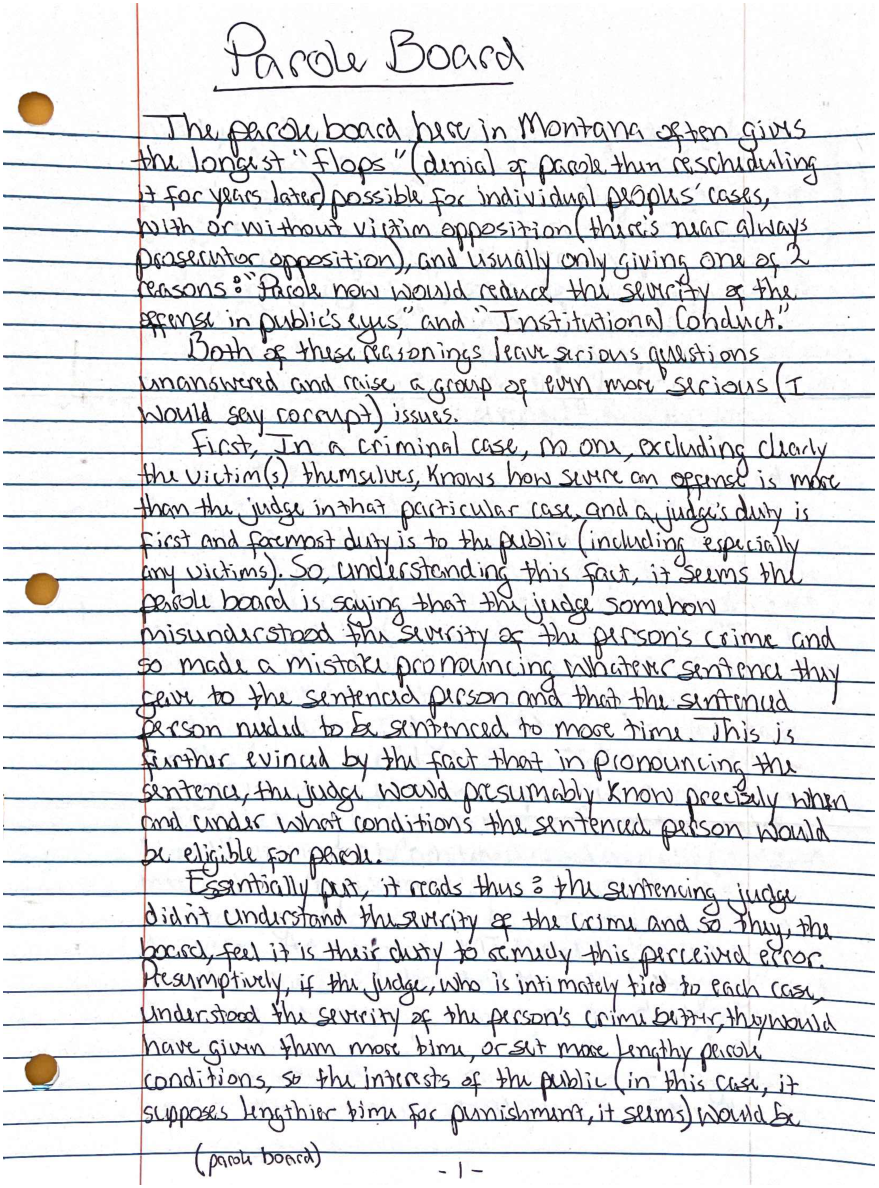 Parole Board
The parole board here in Montana often gives
the longest "flops" (denial of parole then rescheduling
it for years later) possible for individual peoples' cases,
with or without victim opposition (there's near always
prosecutor opposition), and usually only giving one of 2
reasons: "Parole now would reduce the severity of the
offense in public's eyes," and "Institutional Conduct."
Both of these reasonings leave serious questions
unanswered and raise a group of even more serious (I
would say corrupt) issues.
First, In a criminal case, no one, excluding clearly
the victim(s) themselves, knows how severe an offense is more
than the judge in that particular case, and a judge's duty is
first and foremost duty is to the public (including especially
any victims). So, understanding this fact, it seems the
parole board is saying that the judge somehow
misunderstood the severity of the person's crime and
so made a mistake pronouncing whatever sentence they
gave to the sentenced person and that the sentenced
person needed to be sentenced to more time. This is
further evinced by the fact that in pronouncing the
sentence, the judge would presumably know precisely when
and under what conditions the sentenced person would
be eligible for parole.
Essentially put, it reads thus: the sentencing judge
didn't understand the severity of the crime and so they, the
board, feel it is their duty to remedy this perceived error.
Presumptively, if the judge, who is intimately tied to each case,
understood the severity of the person's crime better, they would
have given them more time, or set more lengthy parole
conditions, so the interests of the public (in this case, it
supposes lengthier time for punishment, it seems) would be
(parole board)
-1-